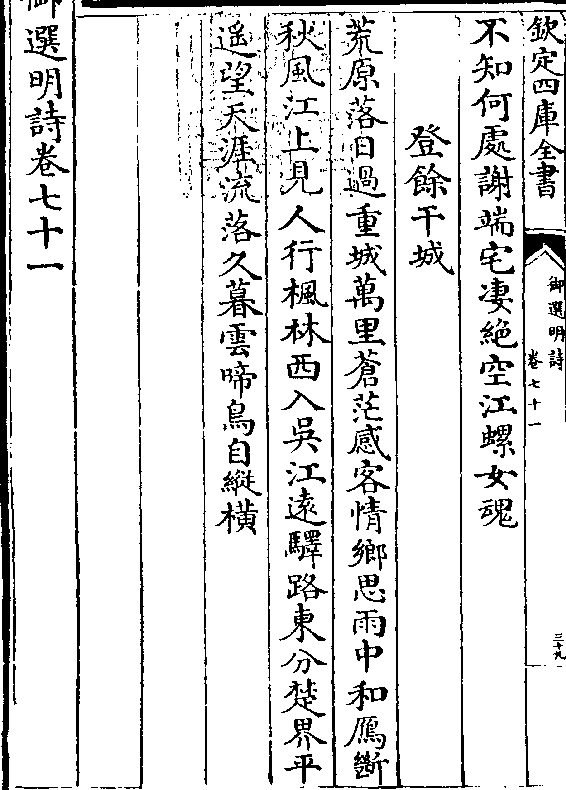 欽定四庫全書
御選明詩
卷七十一
三十九
不知何處謝端宅凄絶空江螺女魂
登餘干城
荒原落日過重城萬里蒼茫感客情鄉思雨中和鴈斷
秋風江上見人行楓林西入吳江遠驛路東分楚界平
遥望天涯流落久暮雲啼鳥自縱橫
御選明詩卷七十一